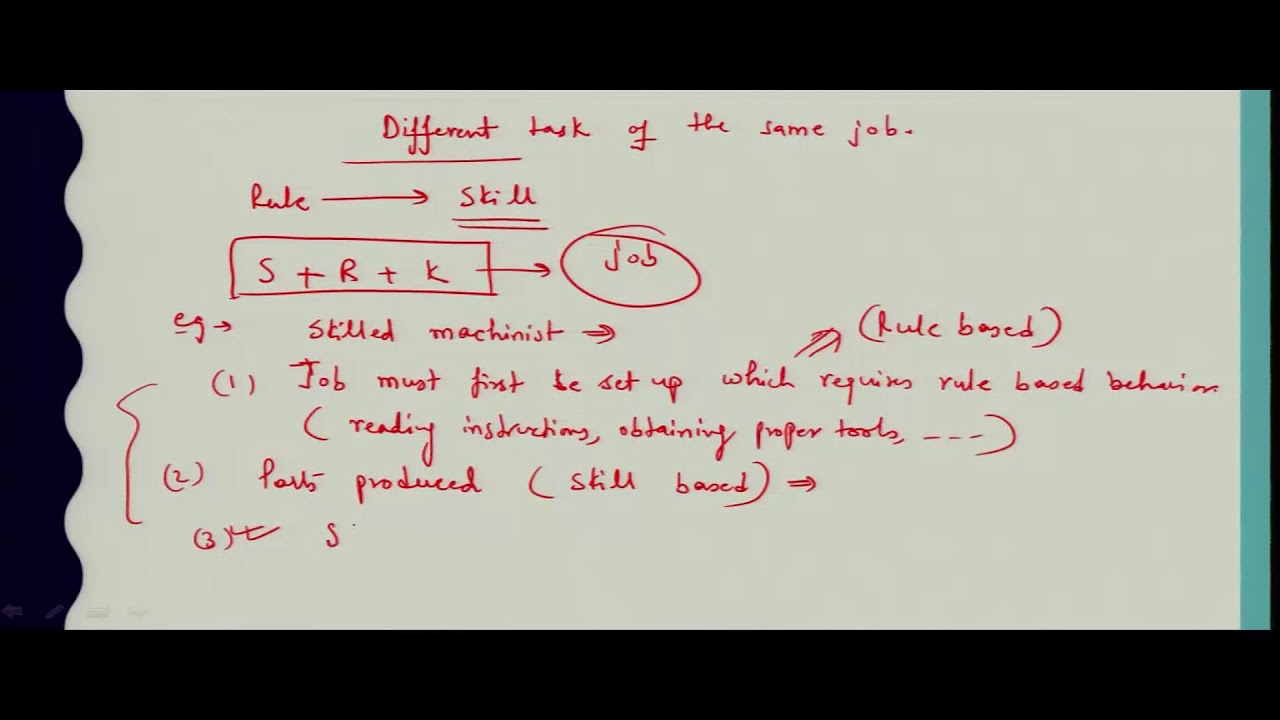 Different task of the same job.
Rule → Skill
S + R + K → Job
eg → Skilled machinist ⇒
(Rule based)
(1) Job must first be set up which requires rule based behavior
(reading instructions, obtaining proper tools, ----)
(2) Parts produced (skill based) ⇒
(3) S